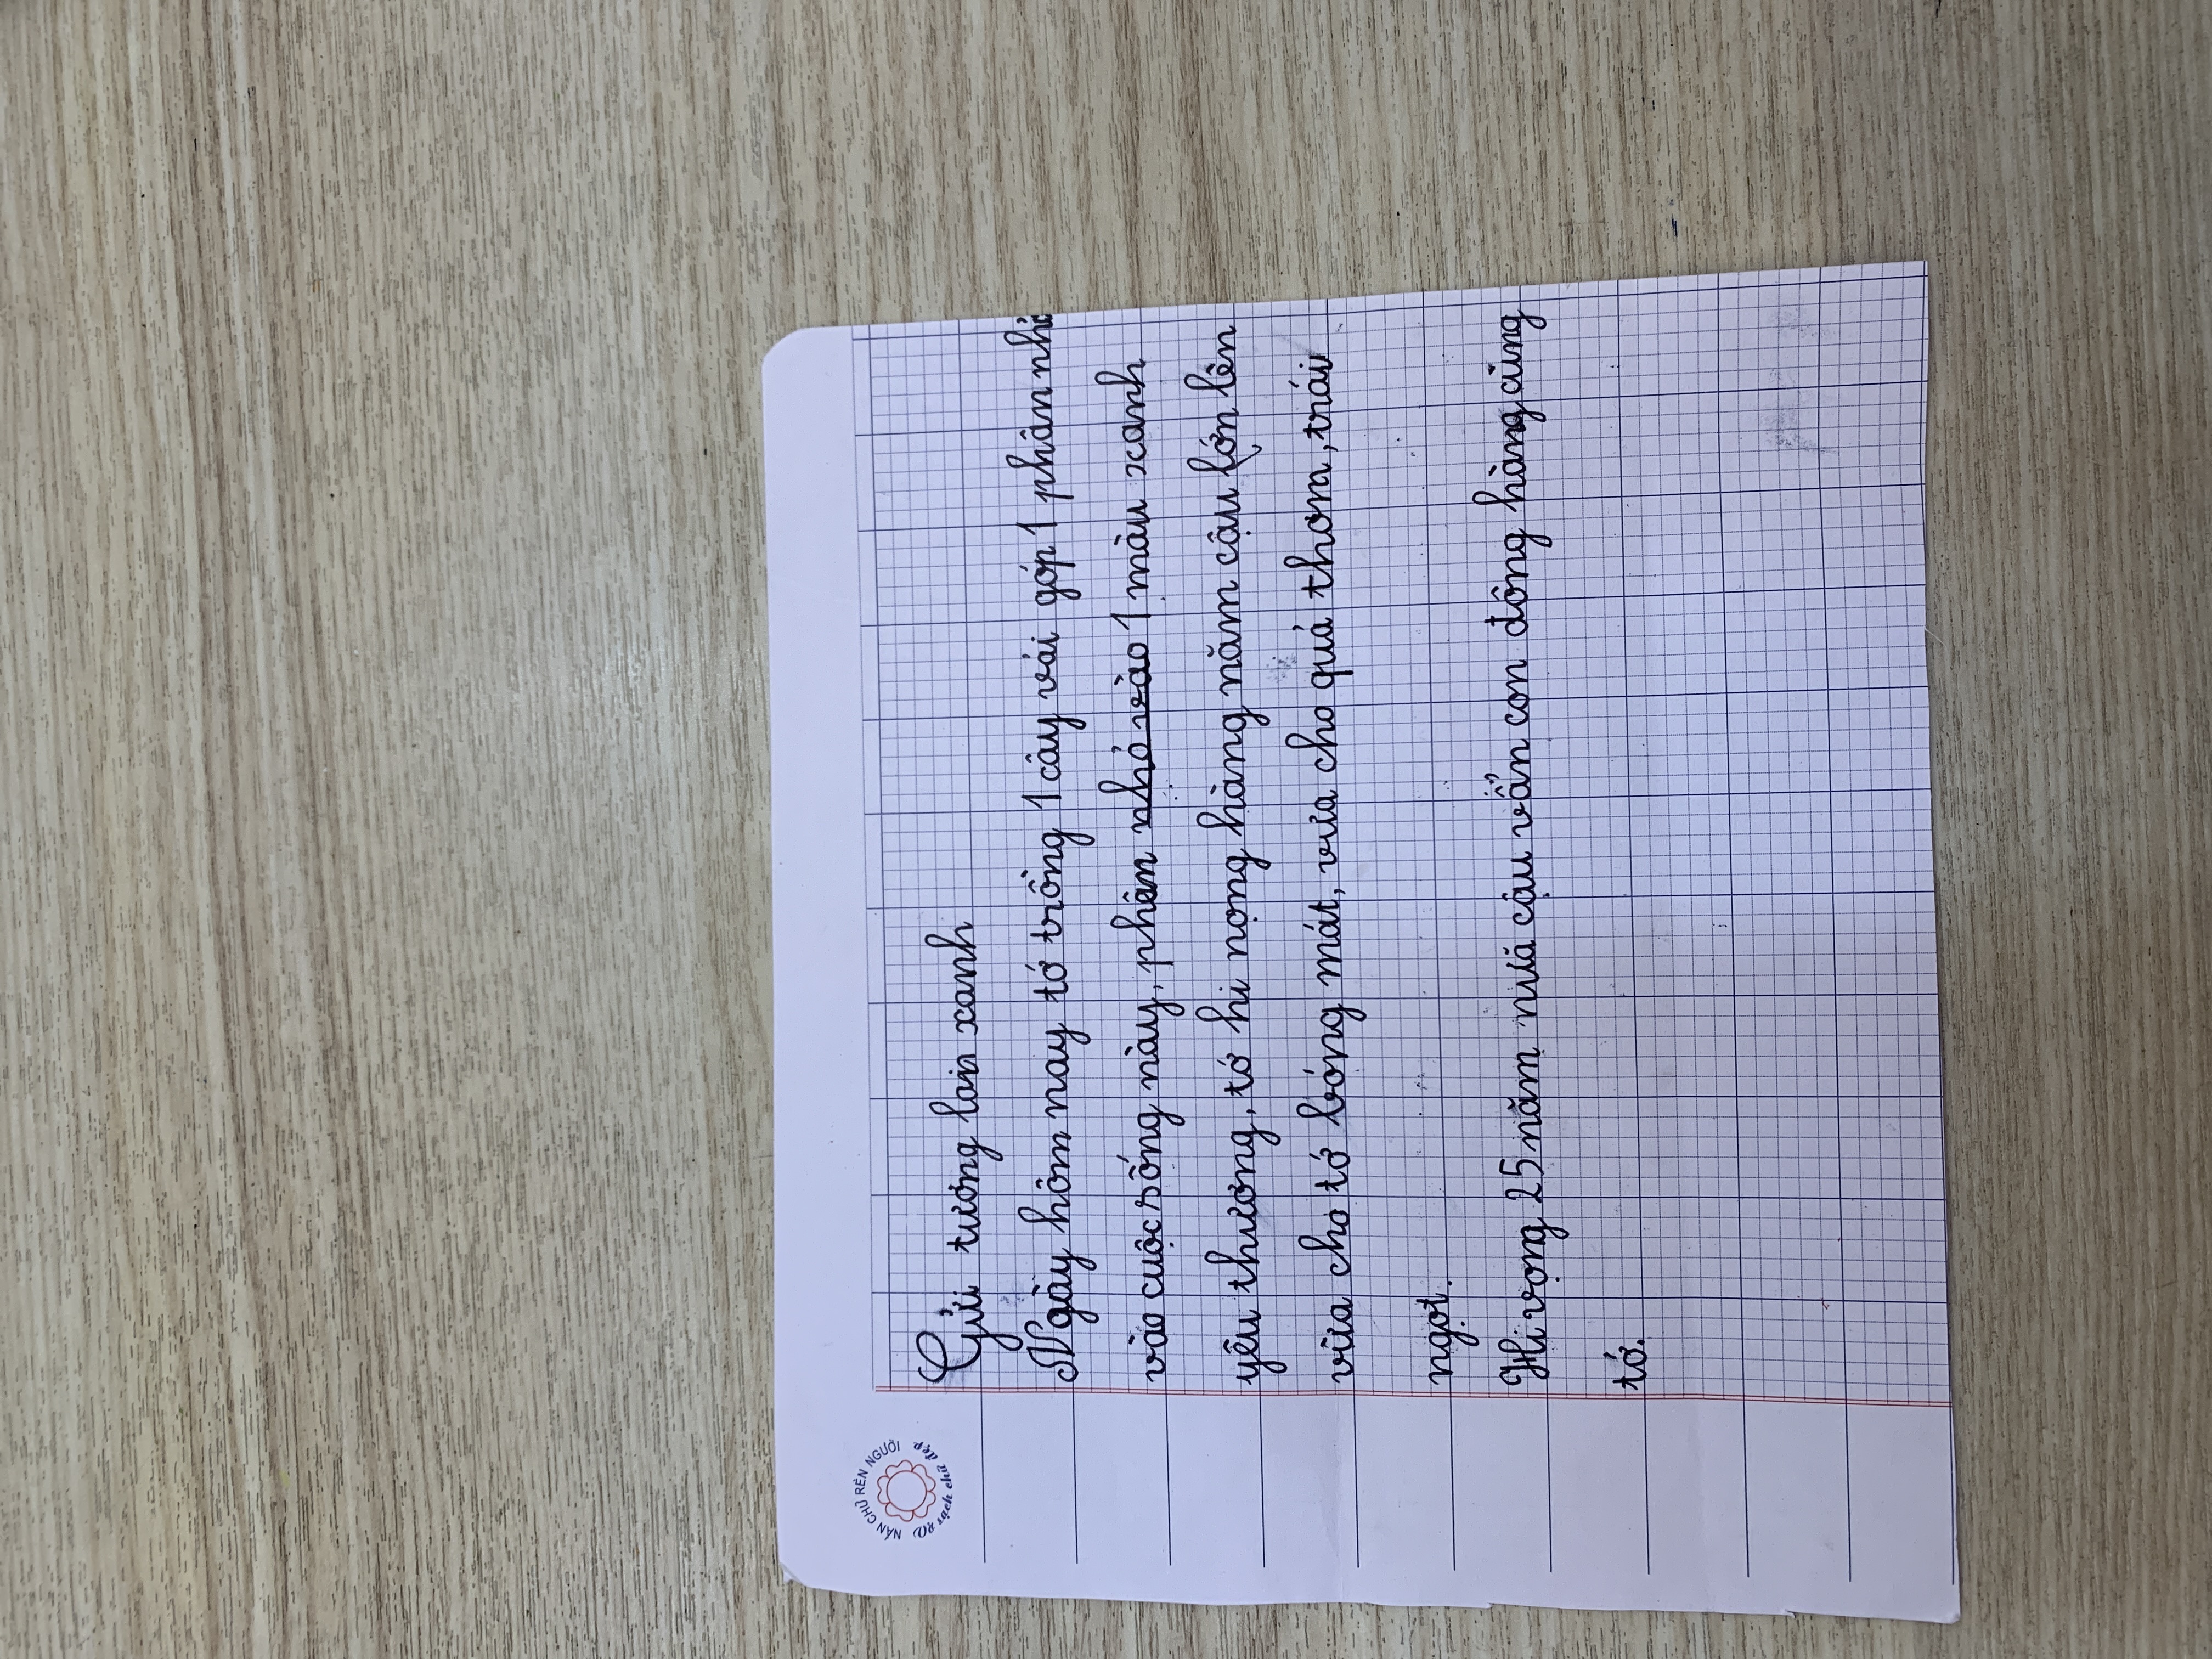 NẮN CHỮ RÈN NGƯỜI
Vở sạch chữ đẹp
Gửi tương lai xanh
Ngày hôm nay tớ trồng 1 cây vải góp 1 phần nhỏ
vào cuộc sống này, phần nhỏ vào 1 màu xanh
yêu thương, tớ hi nọng hàng năm cậu lớn lên
vừa cho tớ bóng mát, vừa cho quả thơm, trái
ngọt.
Hi vọng 25 năm nữa cậu vẩn con đông hàng cùng
tớ.